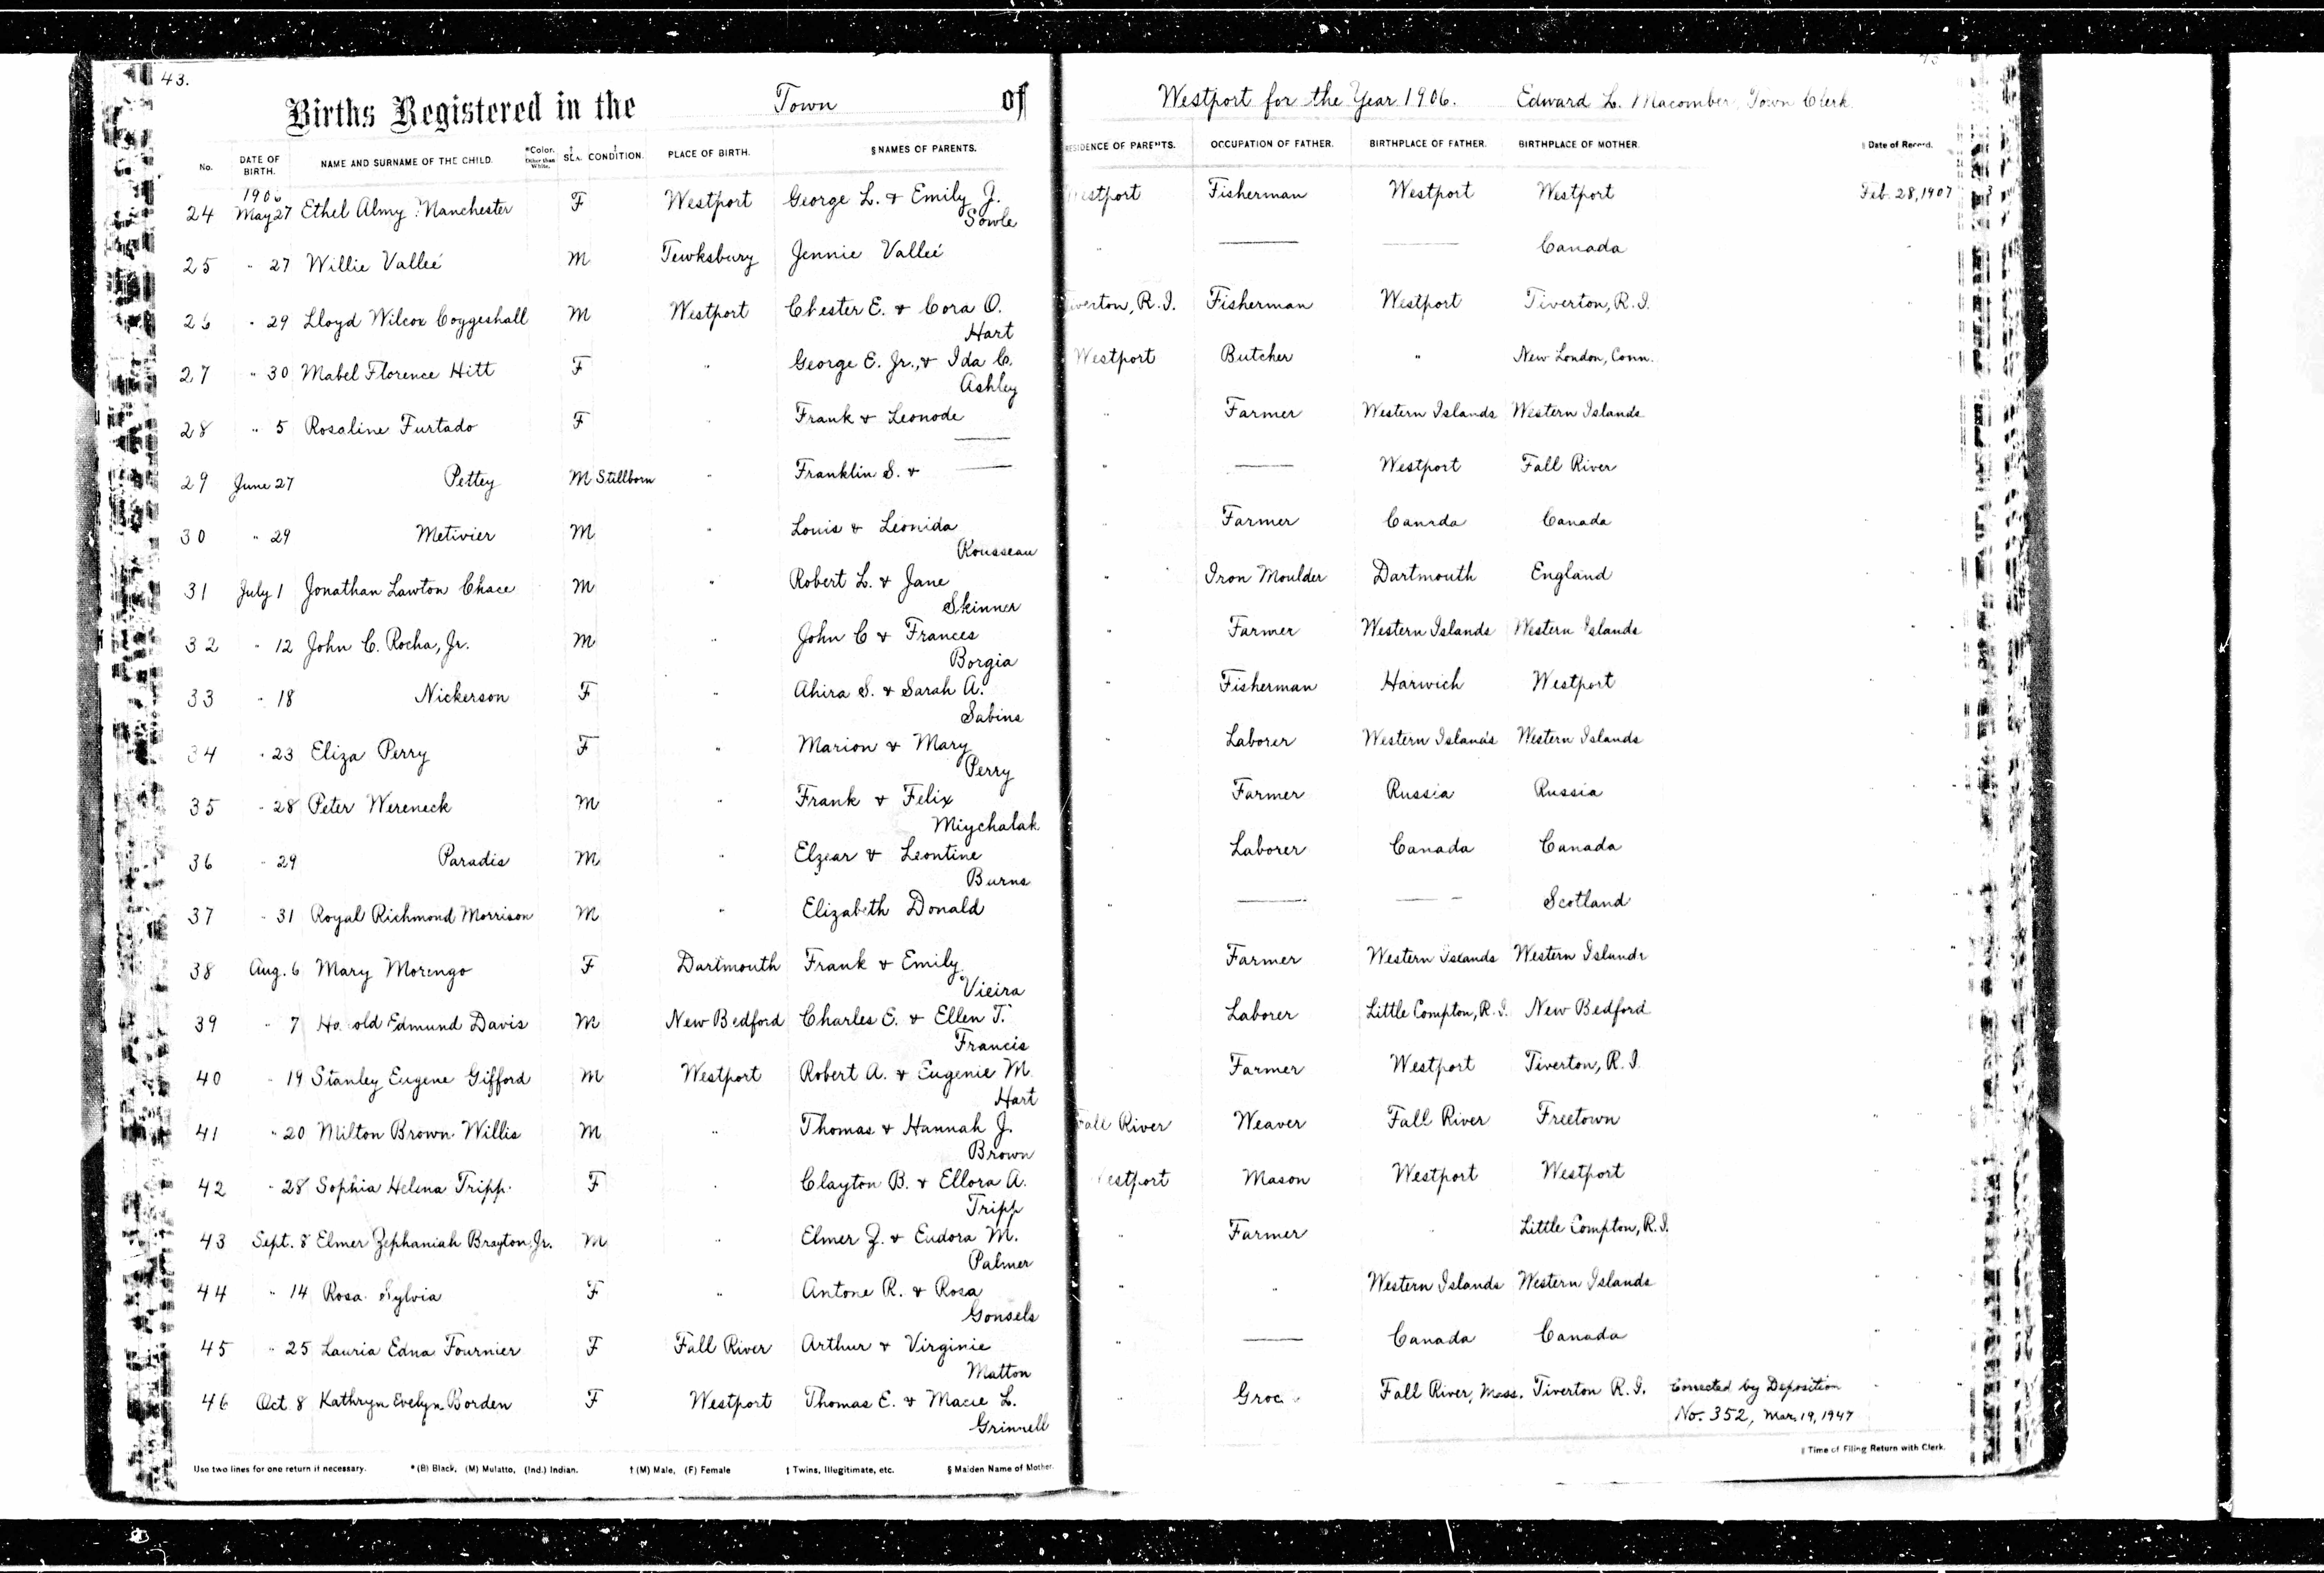 43.
Births Registered in the Town of Westport for the Year 1906. Edward L. Macomber, Town Clerk.
No. DATE OF BIRTH. NAME AND SURNAME OF THE CHILD. *Color. Other than White. SEX. ‡ CONDITION. PLACE OF BIRTH. § NAMES OF PARENTS. RESIDENCE OF PARENTS. OCCUPATION OF FATHER. BIRTHPLACE OF FATHER. BIRTHPLACE OF MOTHER. ‖ Date of Record.
1906
24 May 27 Ethel Almy Manchester F Westport George L. & Emily J. Westport Fisherman Westport Westport Feb. 28, 1907
Sowle
25 " 27 Willie Valleé M Tewksbury Jennie Valleé " — — Canada "
26 " 29 Lloyd Wilcox Coggeshall M Westport Chester E. & Cora O. Tiverton, R.I. Fisherman Westport Tiverton, R.I.
Hart
27 " 30 Mabel Florence Hitt F " George E. Jr., & Ida C. Westport Butcher " New London, Conn.
Ashley
28 " 5 Rosaline Furtado F " Frank & Leonode " Farmer Western Islands Western Islands
—
29 June 27 Pettey M Stillborn " Franklin S. & — " — Westport Fall River
30 " 29 Metivier M " Louis & Leonida " Farmer Canada Canada
Rousseau
31 July 1 Jonathan Lawton Chace M " Robert L. & Jane " Iron Moulder Dartmouth England
Skinner
32 " 12 John C. Rocha, Jr. M " John C & Frances " Farmer Western Islands Western Islands
Borgia
33 " 18 Nickerson F " Ahira S. & Sarah A. " Fisherman Harwich Westport
Sabins
34 " 23 Eliza Perry F " Marion & Mary " Laborer Western Islands Western Islands
Perry
35 " 28 Peter Wereneck M " Frank & Felix Farmer Russia Russia
Miychalak
36 " 29 Paradis M " Elzear & Leontine " Laborer Canada Canada
Burns
37 " 31 Royal Richmond Morrison M " Elizabeth Donald " — — Scotland "
38 Aug. 6 Mary Morengo F Dartmouth Frank & Emily Farmer Western Islands Western Islands "
Vieira
39 " 7 Harold Edmund Davis M New Bedford Charles E. & Ellen T. " Laborer Little Compton, R.I. New Bedford "
Francis
40 " 19 Stanley Eugene Gifford M Westport Robert A. & Eugenie M. " Farmer Westport Tiverton, R.I.
Hart
41 " 20 Milton Brown Willis M " Thomas & Hannah J. Fall River Weaver Fall River Freetown "
Brown
42 " 28 Sophia Helena Tripp F " Clayton B. & Ellora A. Westport Mason Westport Westport "
Tripp
43 Sept. 8 Elmer Zephaniah Brayton, Jr. M " Elmer Z. & Eudora M. " Farmer " Little Compton, R.I. "
Palmer
44 " 14 Rosa Sylvia F " Antone R. & Rosa " " Western Islands Western Islands "
Gonsels
45 " 25 Lauria Edna Fournier F Fall River Arthur & Virginie " — Canada Canada "
Matton
46 Oct. 8 Kathryn Evelyn Borden F Westport Thomas E. & Macie L. " Fall River, Mass. Tiverton R.I. Corrected by Deposition "
Grinnell No. 352, Mar. 19, 1947
‖ Time of Filing Return with Clerk.
Use two lines for one return if necessary. * (B) Black, (M) Mulatto, (Ind.) Indian. † (M) Male, (F) Female ‡ Twins, Illegitimate, etc. § Maiden Name of Mother.